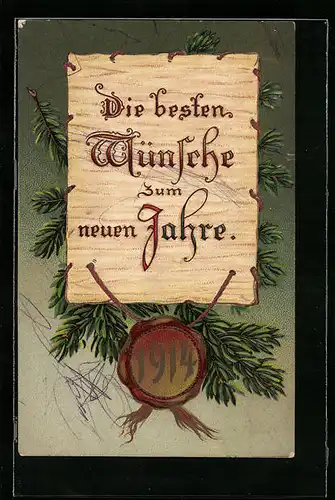 Die besten
Wünsche
zum
neuen Jahre.
1914